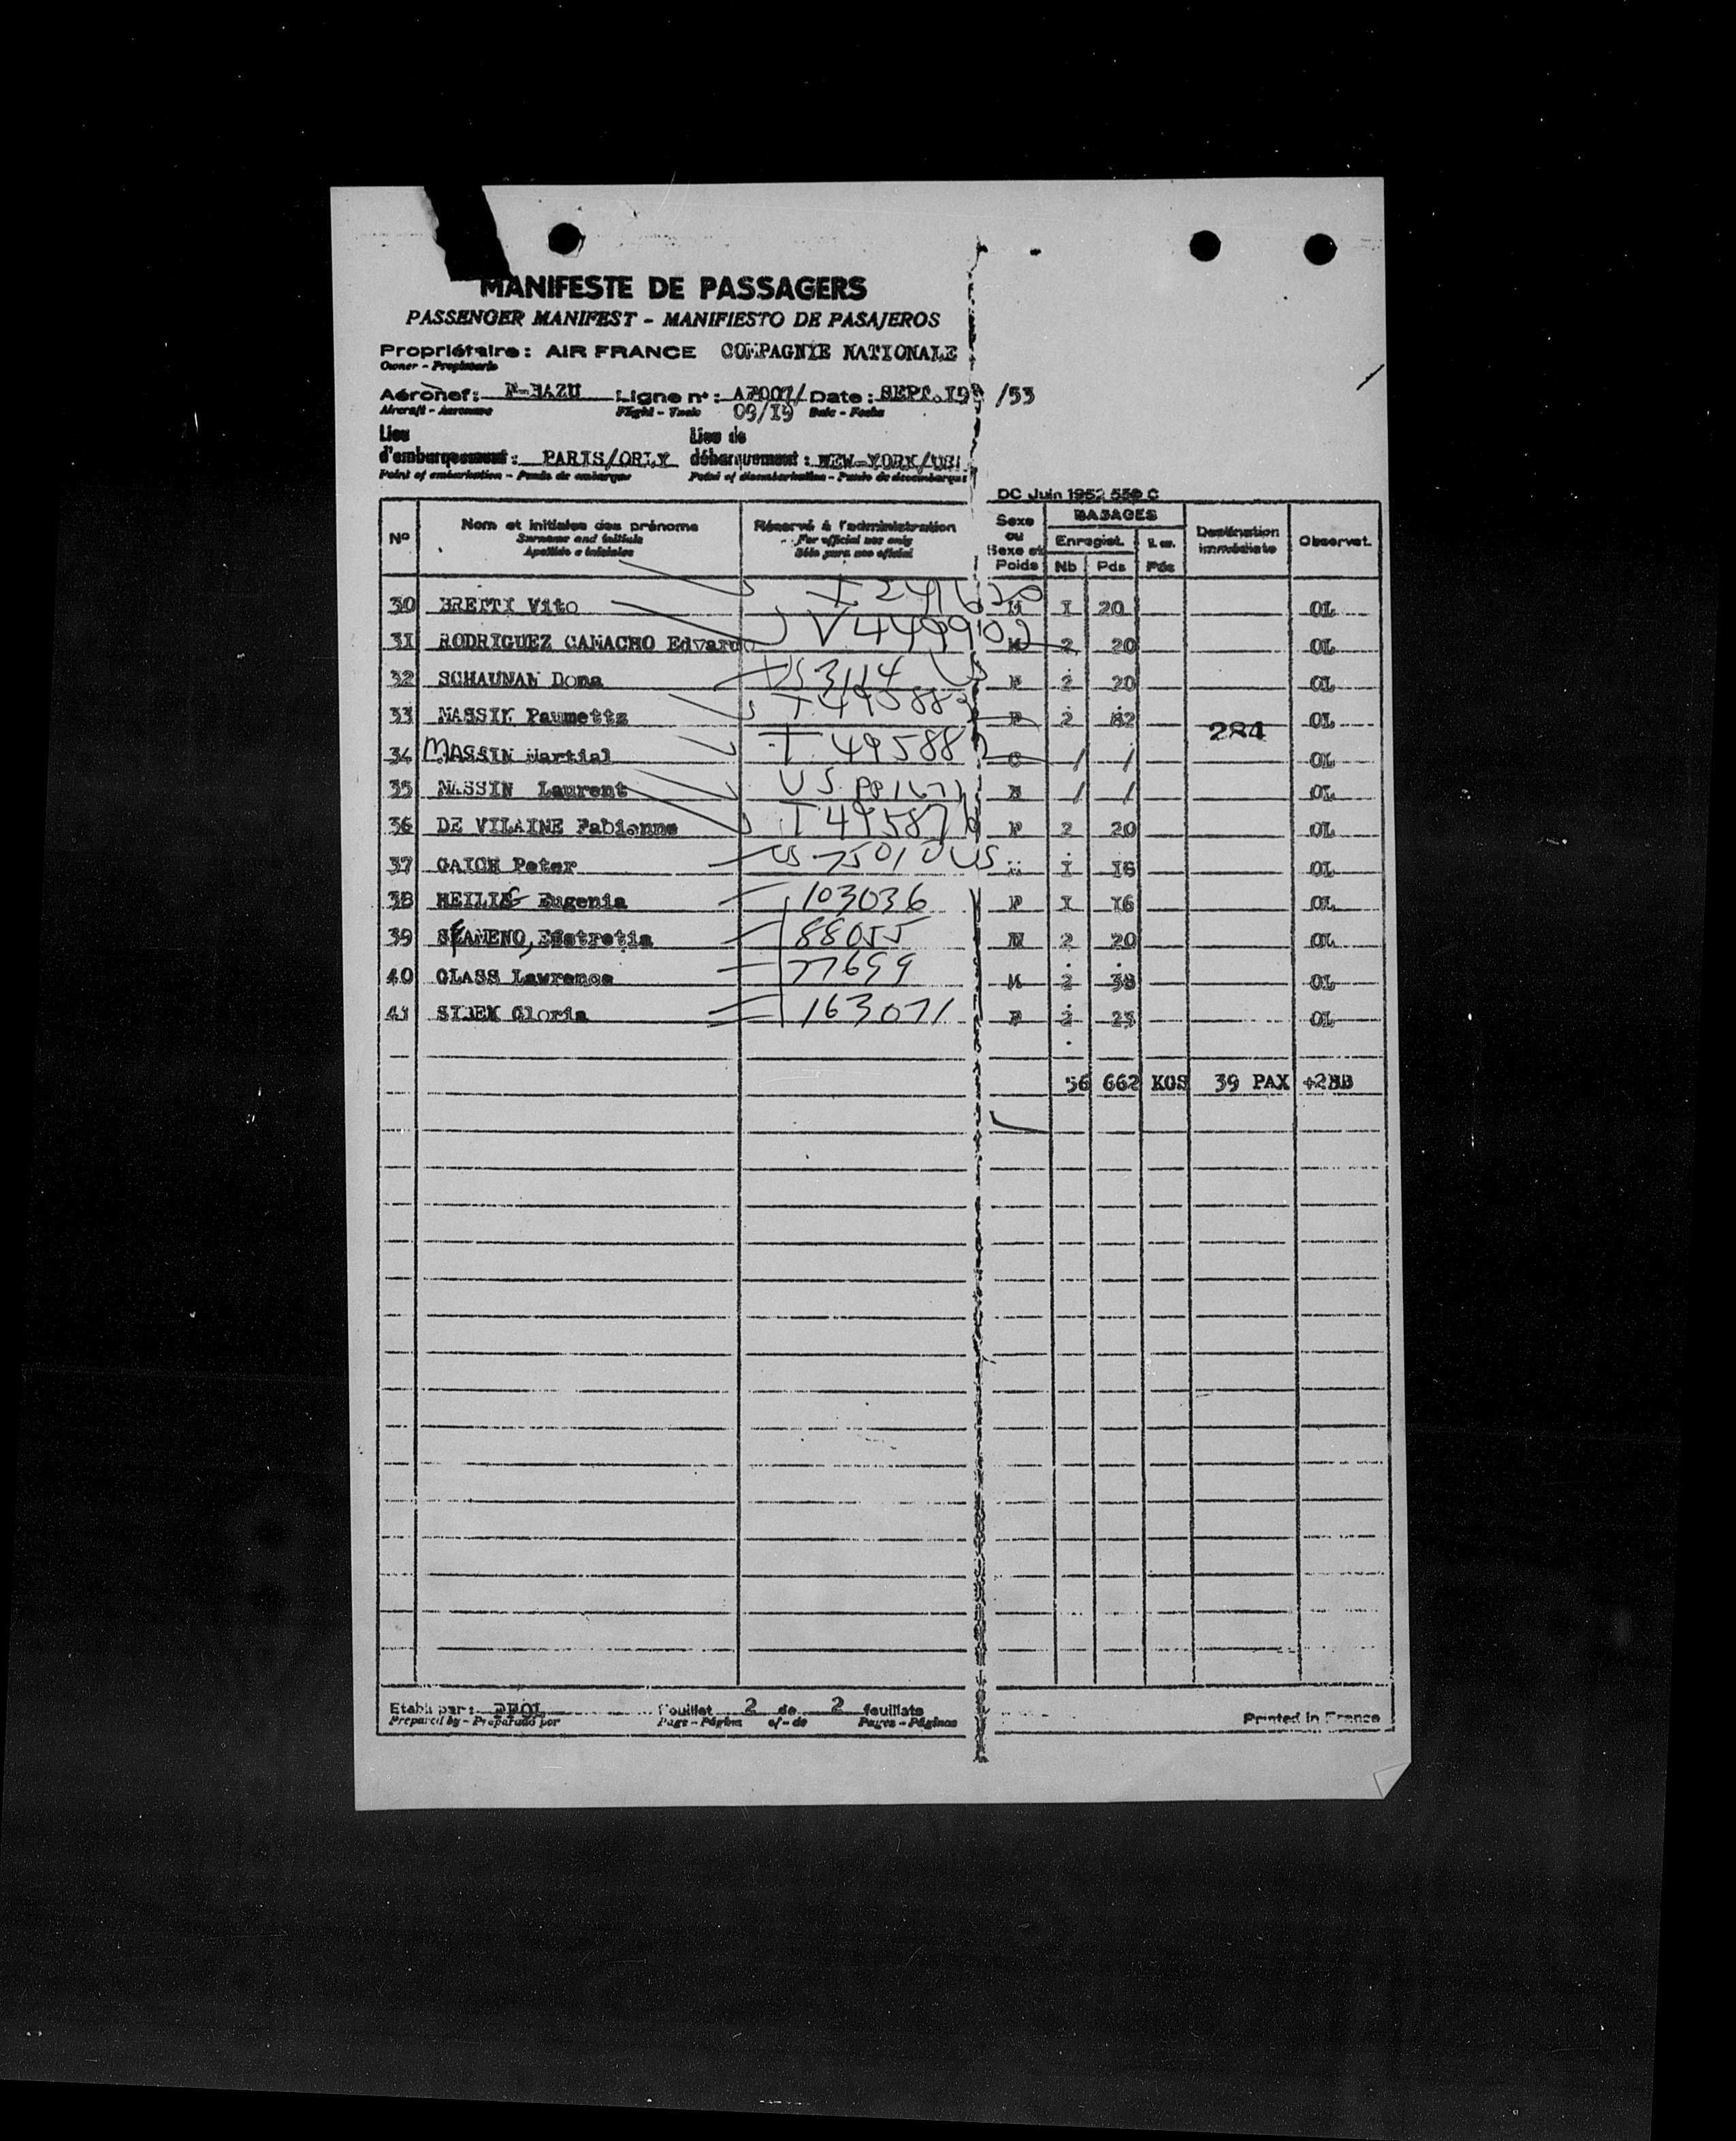 MANIFESTE DE PASSAGERS
PASSENGER MANIFEST - MANIFIESTO DE PASAJEROS
Propriétaire : AIR FRANCE COMPAGNIE NATIONALE
Owner - Propietario
Aéronef : F-BAZU Ligne n° : AF007/ Date : SEPT. 19 /53
Aircraft - Aeronave Flight - 09/19 Date - Fecha
Lieu Lieu de
d'embarquement : PARIS/ORLY débarquement : NEW-YORK/
Point of embarkation - Punto de embarque Point of disembarkation - Punto de desembarque
DC Juin 1952 550 C
N° Nom et initiales des prénoms Réservé à l'administration Sexe ou Sexe et Poids BAGAGES Destination immédiate Observat.
Surname and initials For official use only Enregist.
Apellido e iniciales Sólo para uso oficial Nb Pds Pds
30 Vito M 1 20 OL
31 RODRIGUEZ CAMACHO Edvardo V 4499102 M 2 20 OL
32 SCHAUNAN Dona US F 2 20 OL
33 MASSIN F 2 82 284 OL
34 MASSIN Martial T 49588 C / / OL
35 MASSIN Laurent US / / OL
36 DE VILAINE Fabienne F 2 20 OL
37 GAICH Peter US I 18 OL
38 HEILIG Eugenia 103036 F I 16 OL
39 88055 2 20 OL
40 GLASS Lawrence 77699 M 2 38 OL
41 Gloria 163071 F 2 23 OL
56 662 KGS 39 PAX +2BB
Etabli par : Feuillet 2 de 2 feuillets
Prepared by - Preparado por Page - Página of - de Pages - Páginas
Printed in France